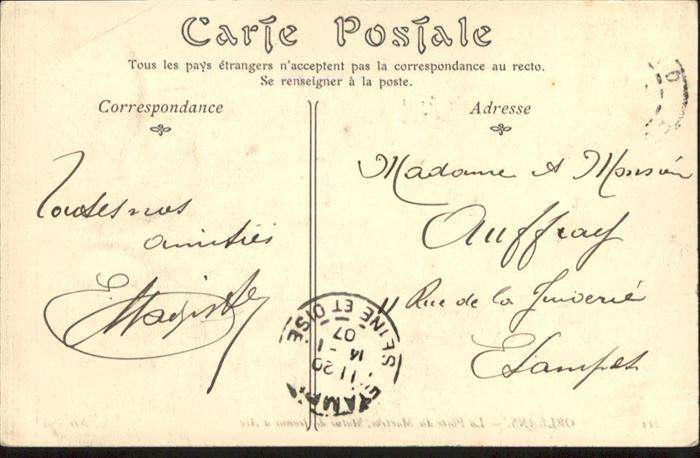 Carte Postale
Tous les pays étrangers n'acceptent pas la correspondance au recto.
Se renseigner à la poste.
Correspondance
Toutes nos
amitiés
Adresse
Madame et Monsieur
Auffray
11 Rue de la Juiverie
Etampes
ETAMPES
11 20
14 - 1
07
SEINE ET OISE
ORLEANS. - La Place du Martroi, Statue de Jeanne d'Arc